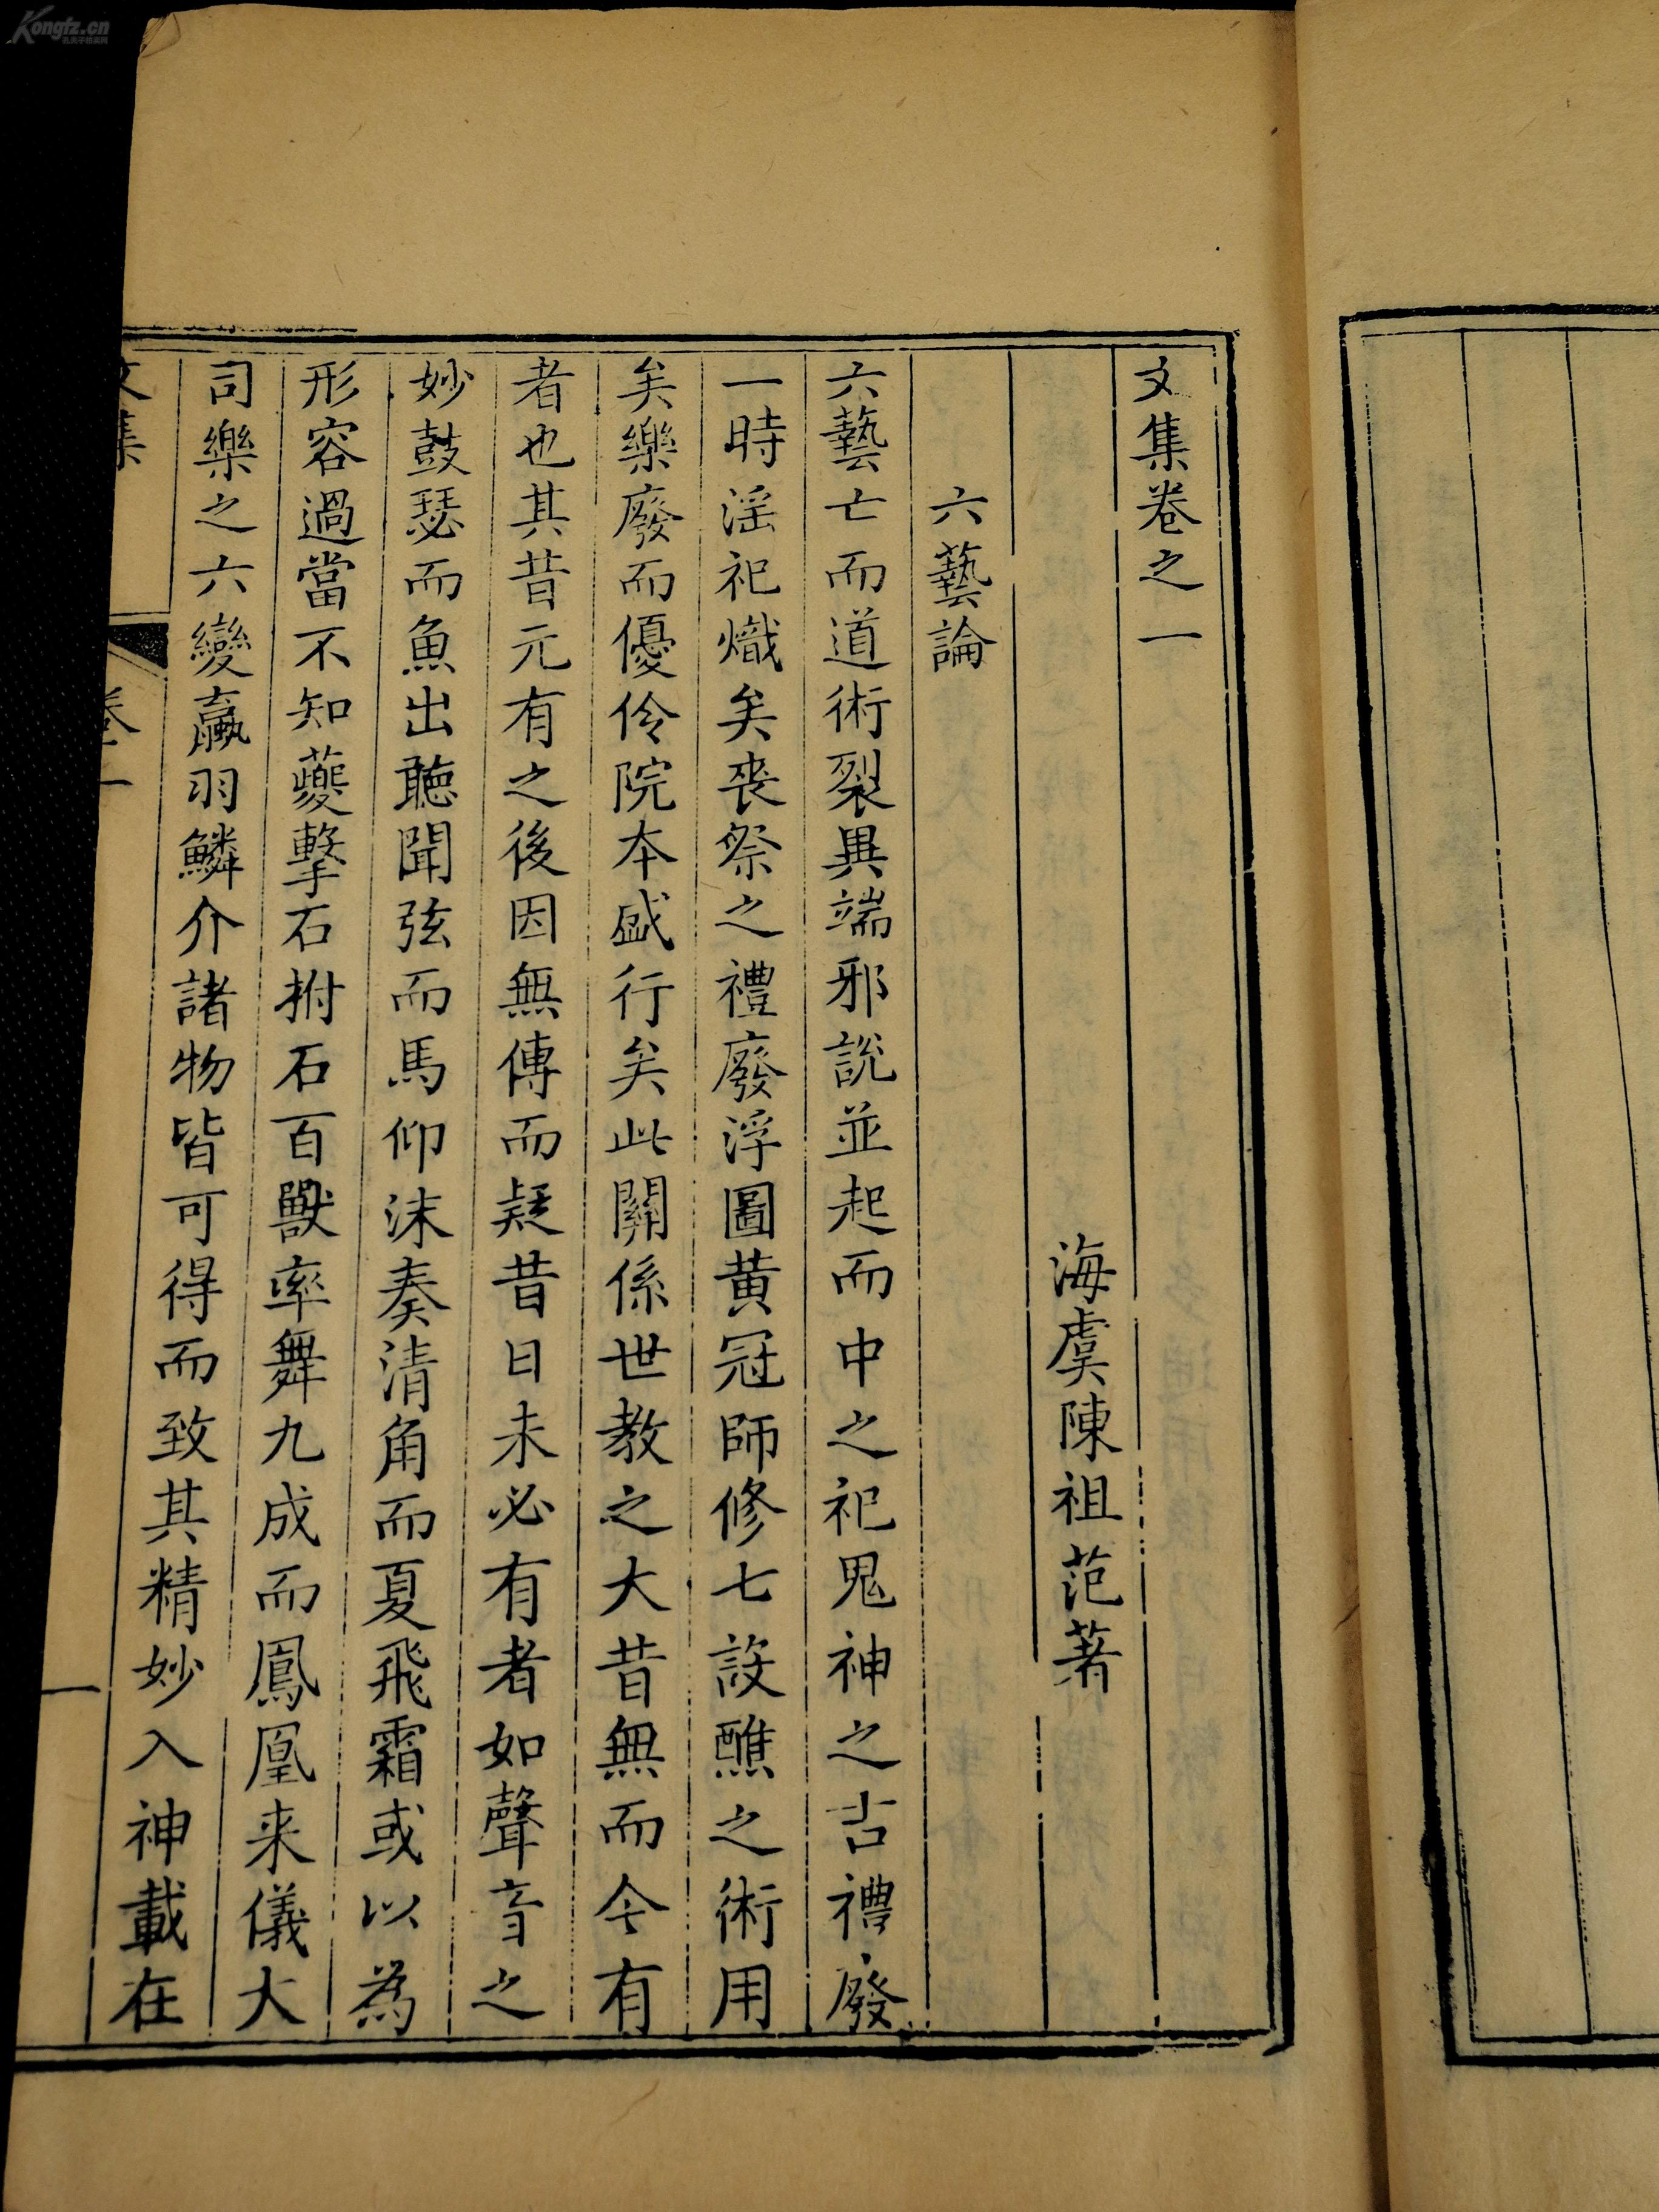 文集卷之一
海虞陳祖范著
六藝論
六藝亡而道術裂異端邪說並起而中之祀鬼神之吉禮廢
一時淫祀熾矣喪祭之禮廢浮圖黄冠師修七設醮之術用
矣樂廢而優伶院本盛行矣此關係世教之大昔無而今有
者也其昔元有之後因無傳而疑昔日未必有者如聲音之
妙鼓瑟而魚出聽聞弦而馬仰沫奏清角而夏飛霜或以為
形容過當不知夔擊石拊石百獸率舞九成而鳳凰来儀大
司樂之六變羸羽鱗介諸物皆可得而致其精妙入神載在
文集
卷一
一
Kongfz.cn